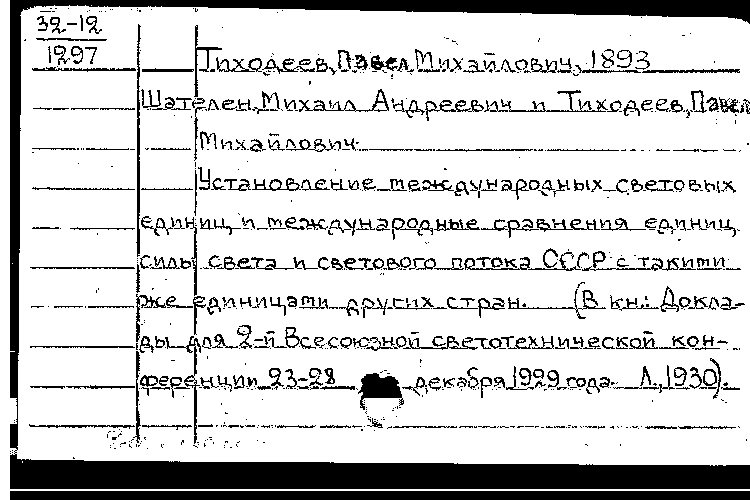 32-12
1297
Тиходеев, Павел Михайлович, 1893
Шателен, Михаил Андреевич и Тиходеев, Павел
Михайлович.
Установление международных световых
единиц и международные сравнения единиц
силы света и светового потока СССР с такими
же единицами других стран. (В кн.: Докла-
ды для 2-й Всесоюзной светотехнической кон-
ференции 23-28 декабря 1929 года. Л., 1930).